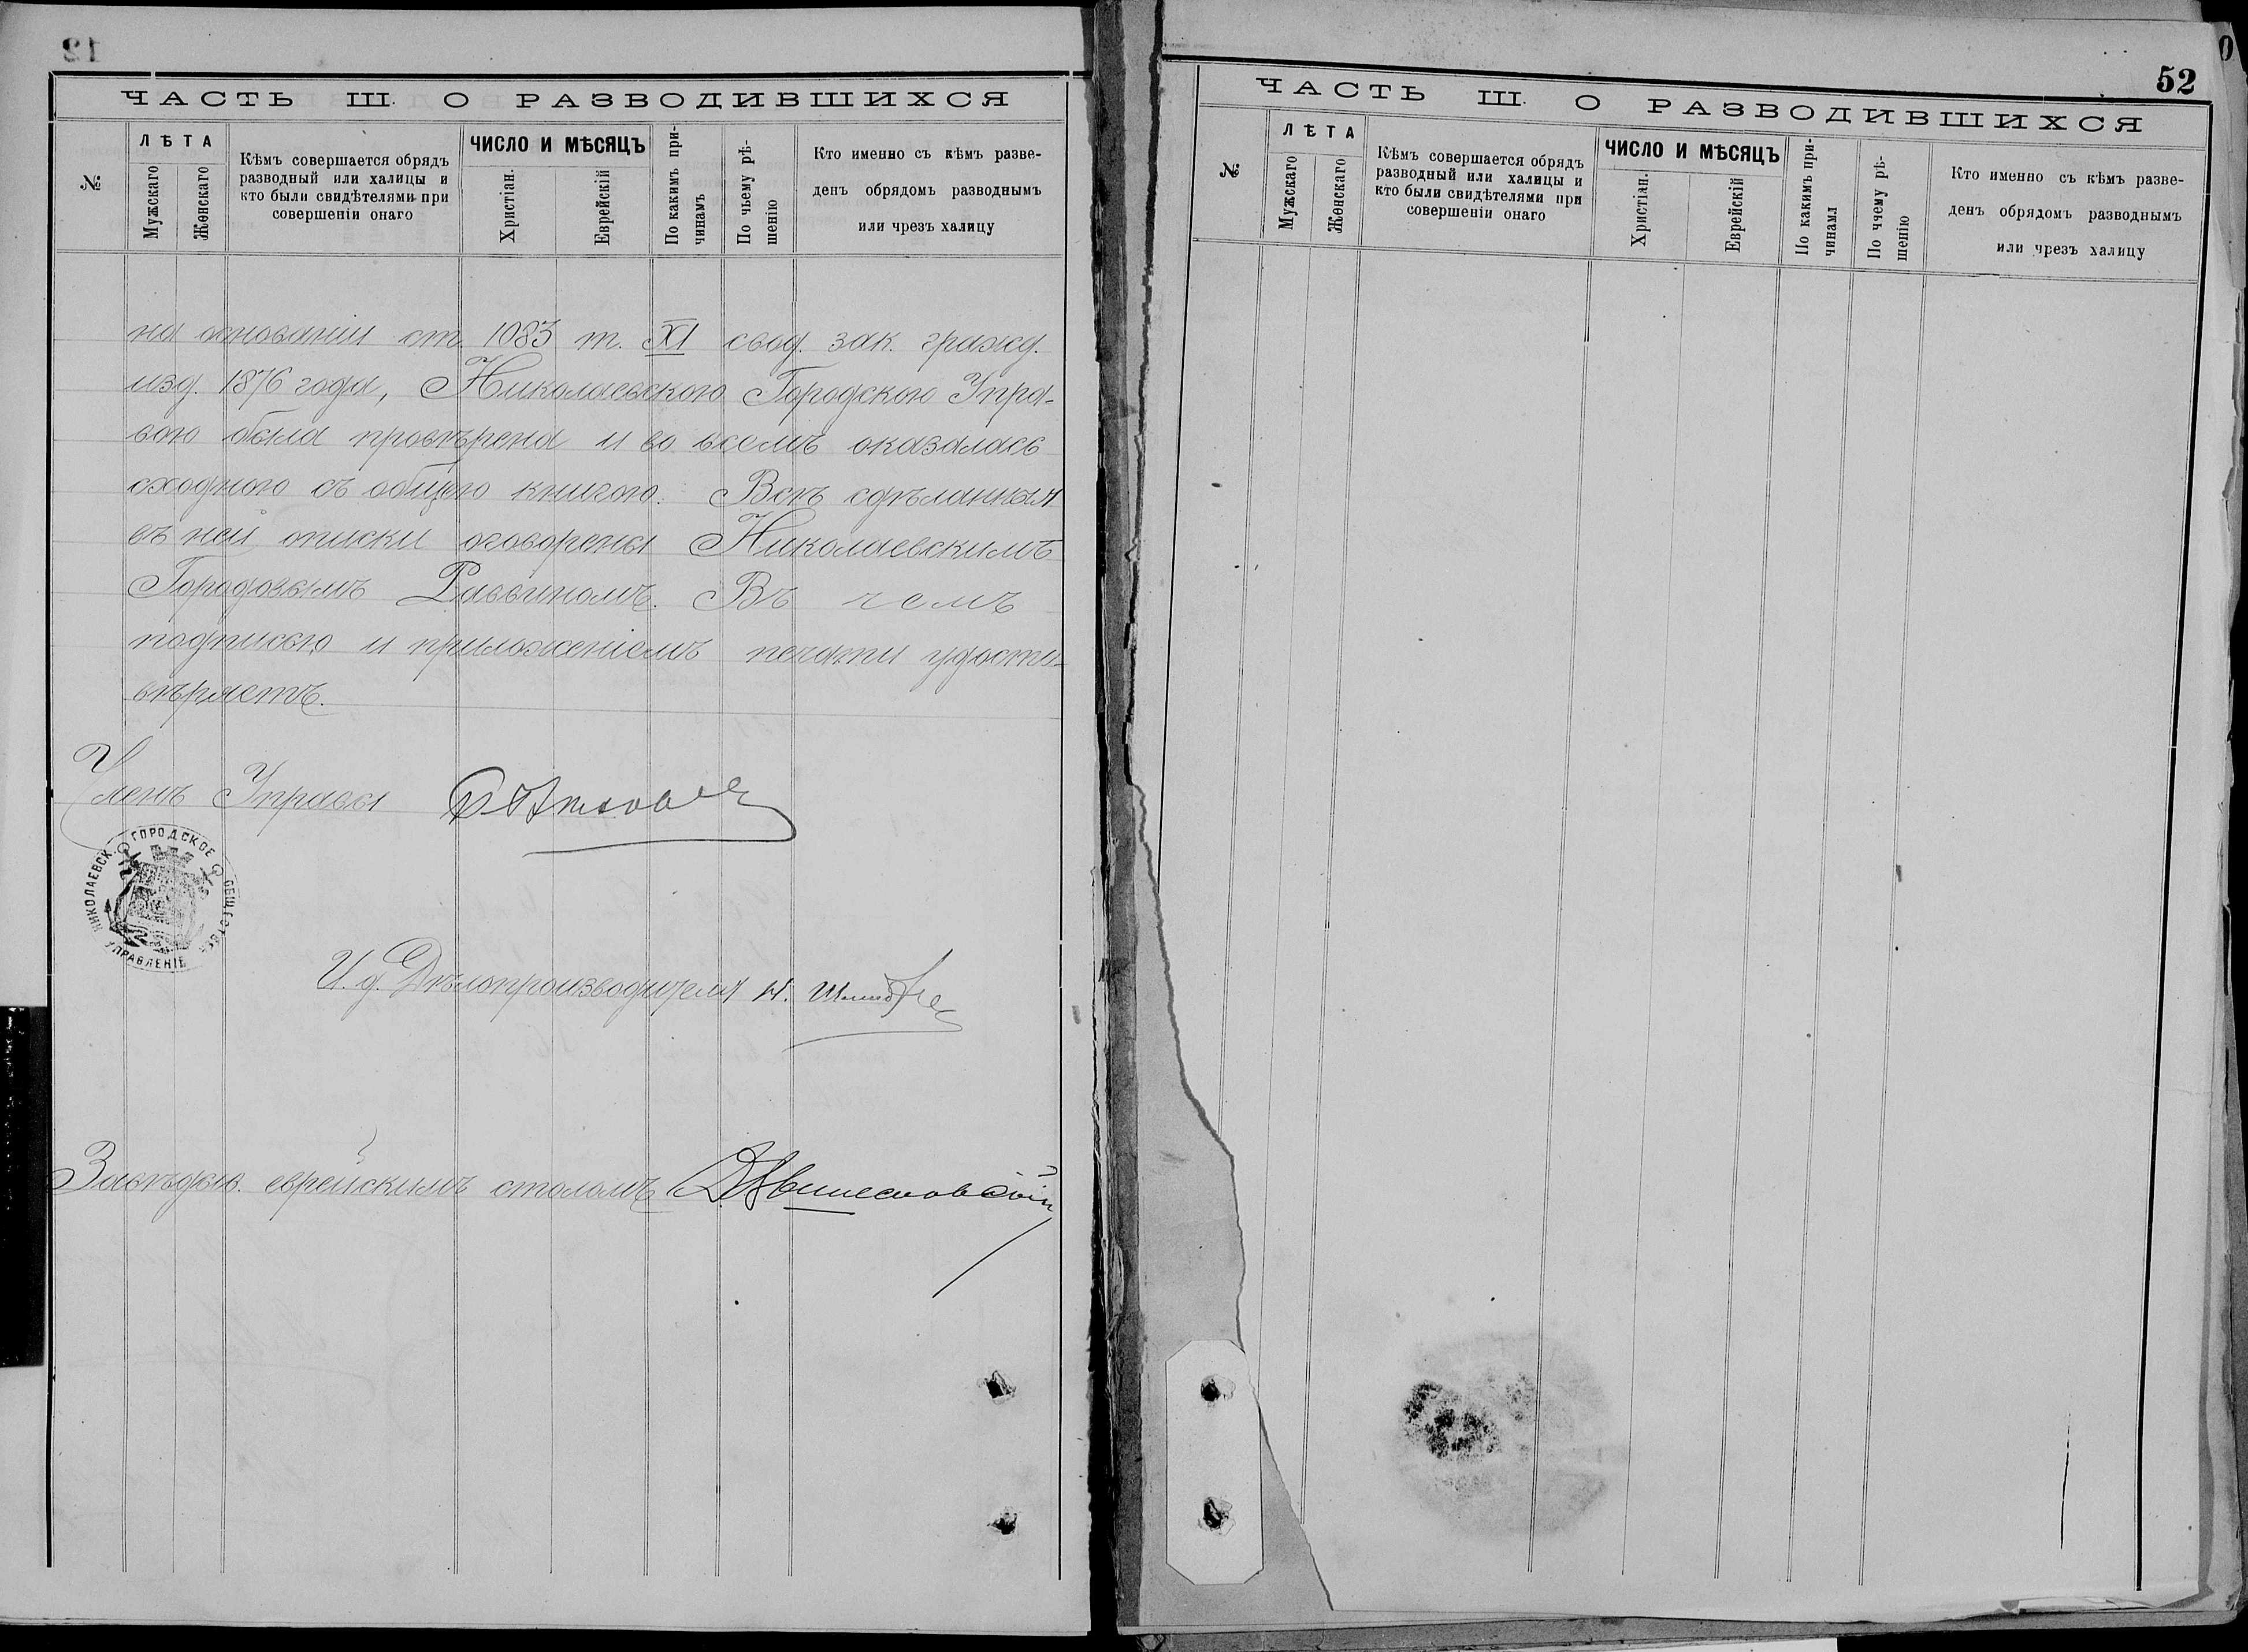 12
ЧАСТЬ III. О РАЗВОДИВШИХСЯ
№
ЛѢТА
Мужскаго
Женскаго
Кѣмъ совершается обрядъ
разводный или халицы и
кто были свидѣтелями при
совершеніи онаго
ЧИСЛО И МѢСЯЦЪ
Христіан.
Еврейскій
По какимъ при-
чинамъ
По чьему рѣ-
шенію
Кто именно съ кѣмъ разве-
денъ обрядомъ разводнымъ
или чрезъ халицу
на основаніи ст. 1083 т. XI свод. зак. гражд.
изд. 1876 года, Николаевскою Городскою Упра-
вою была провѣрена и во всемъ оказалась
сходною съ общею книгою. Всѣ сдѣланныя
въ ней описки оговорены Николаевскимъ
Городовымъ Раввиномъ. Въ чемъ
подписью и приложеніемъ печати удосто-
вѣряетъ.
Членъ Управы
НИКОЛАЕВСК. ГОРОДСКОЕ ОБЩЕСТВЕН. УПРАВЛЕНІЕ
И. д. Дѣлопроизводителя Н.
Завѣдыв. еврейскимъ столомъ
52
ЧАСТЬ III. О РАЗВОДИВШИХСЯ
№
ЛѢТА
Мужскаго
Женскаго
Кѣмъ совершается обрядъ
разводный или халицы и
кто были свидѣтелями при
совершеніи онаго
ЧИСЛО И МѢСЯЦЪ
Христіан.
Еврейскій
По какимъ при-
чинамъ
По чьему рѣ-
шенію
Кто именно съ кѣмъ разве-
денъ обрядомъ разводнымъ
или чрезъ халицу